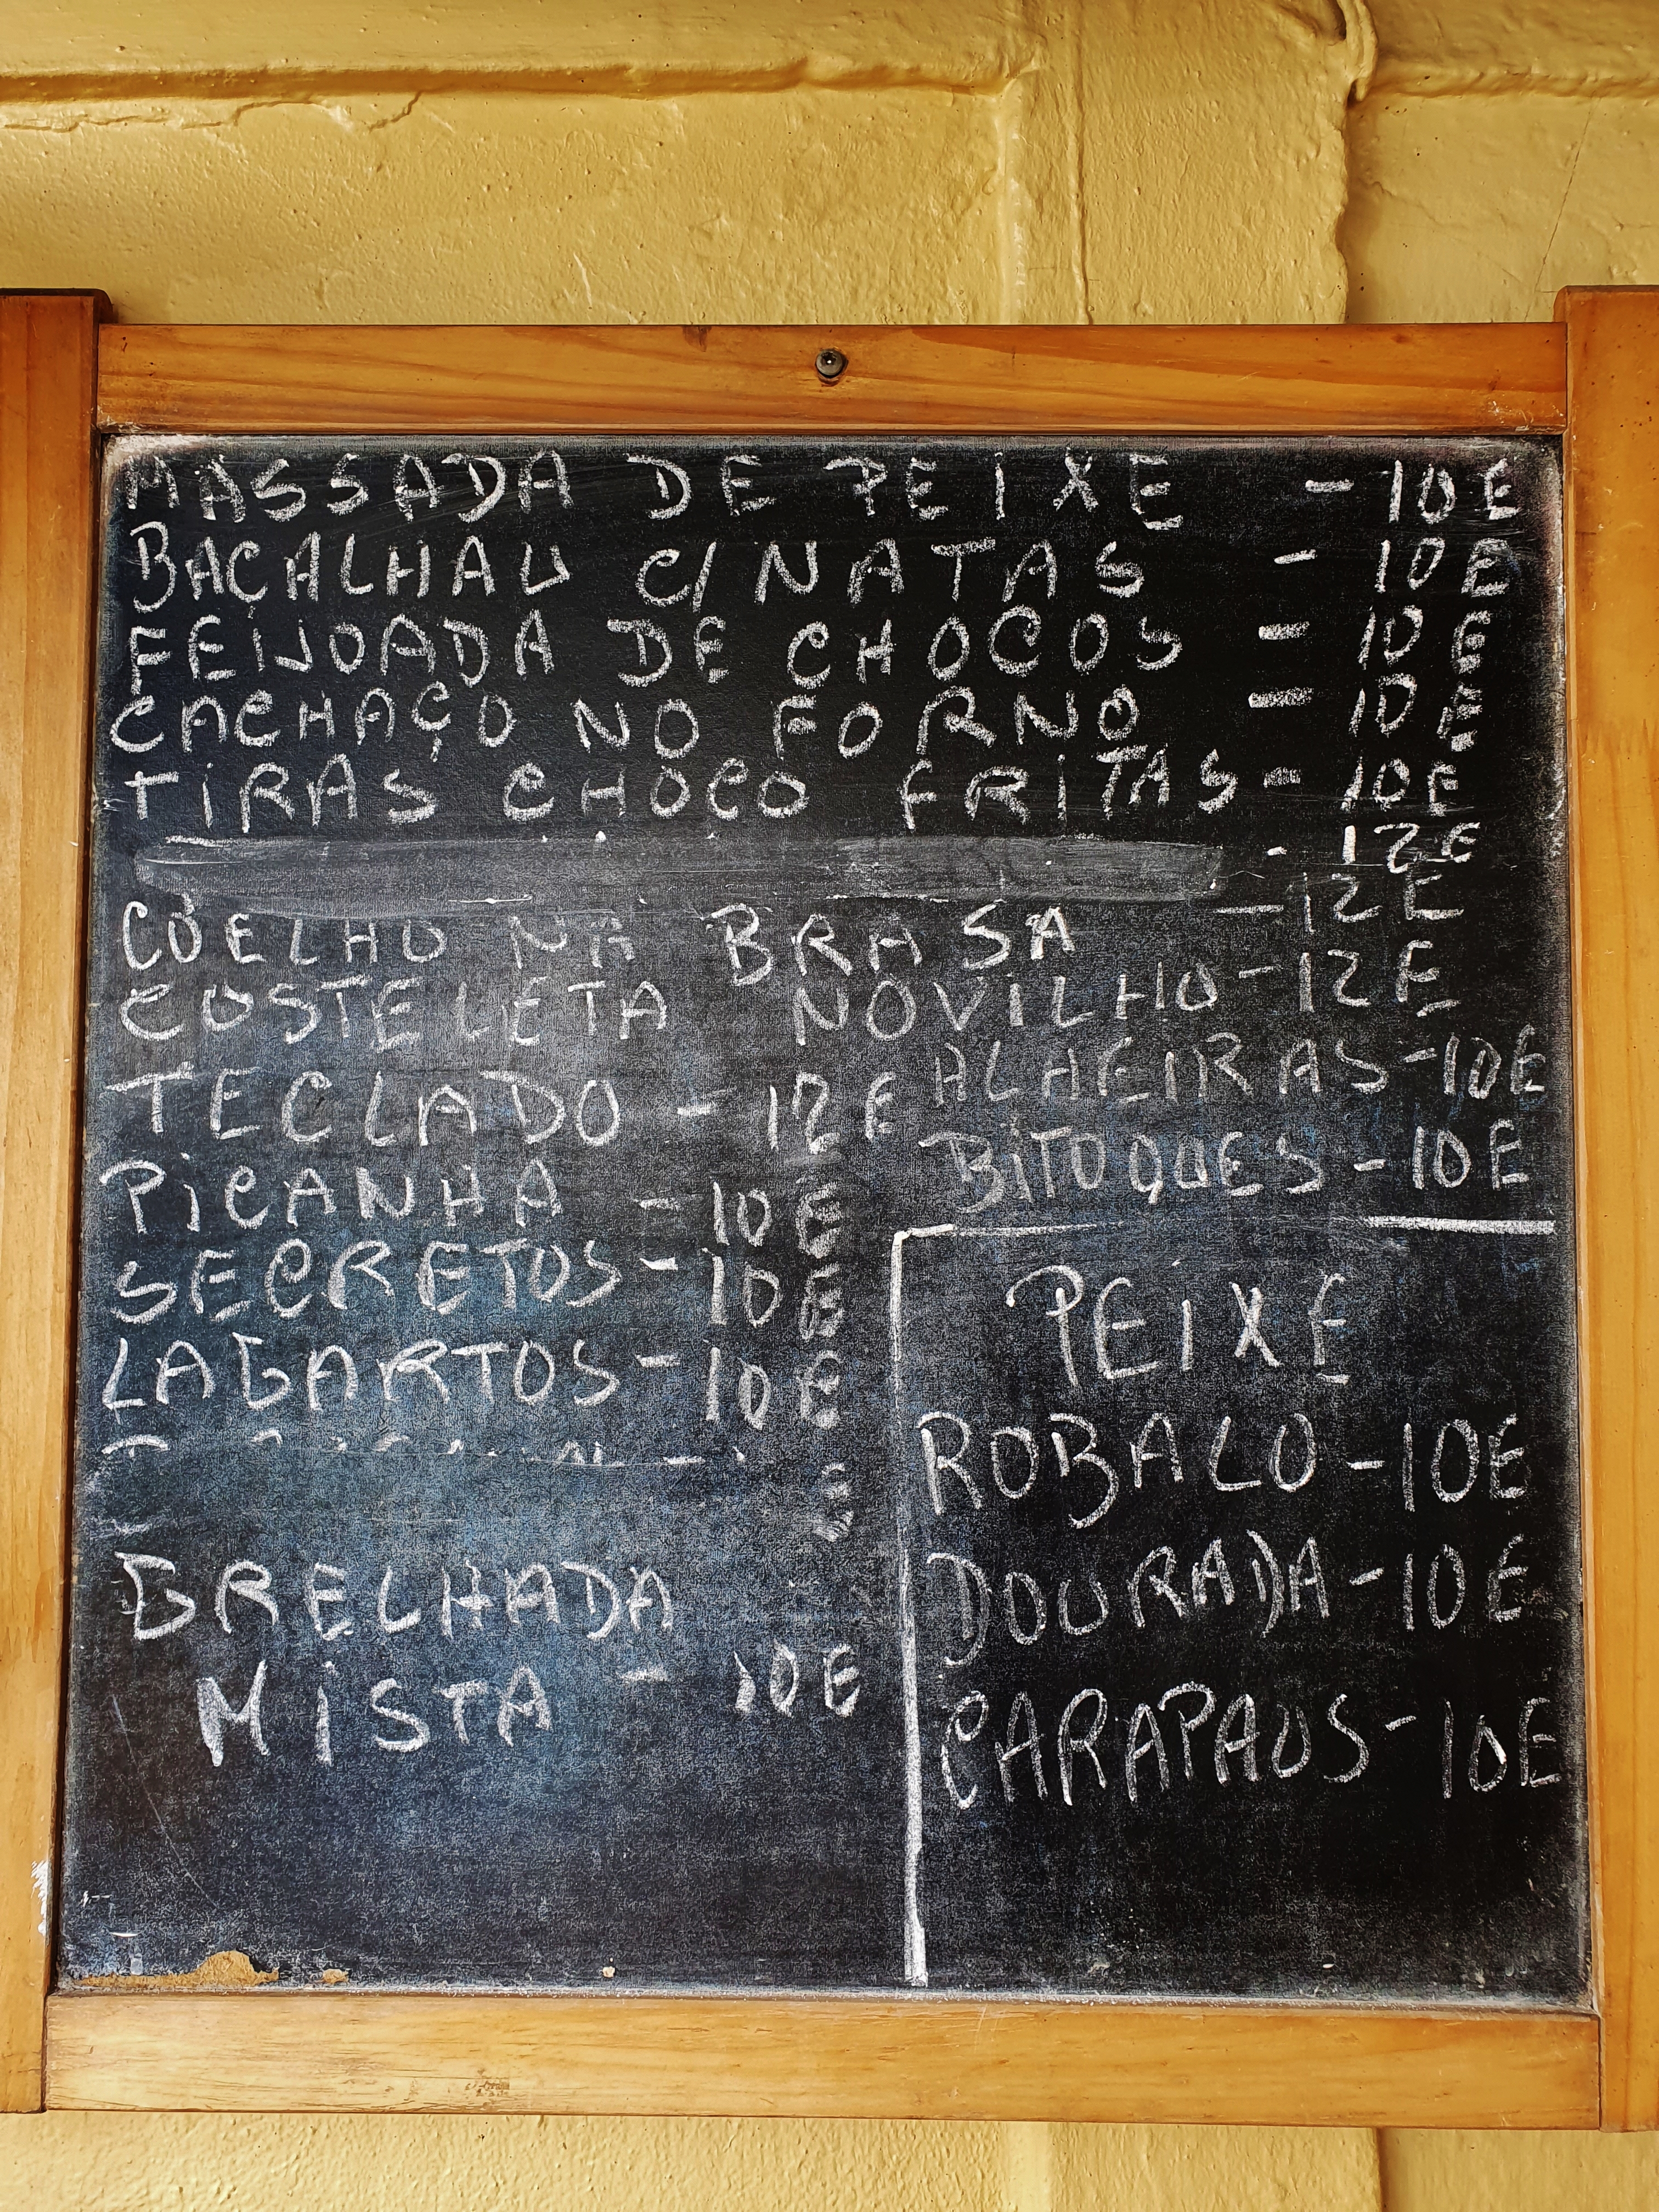 MASSADA DE PEIXE - 10E
BAÇALHAU C/NATAS - 10E
FEIJOADA DE CHOCOS - 10E
CACHAÇO NO FORNO - 10E
TIRAS CHOCO FRITAS - 10E
- 12E
COELHO NA BRASA - 12E
COSTELETA NOVILHO - 12E
TECLADO - 12E
PICANHA - 10E
SECRETOS - 10E
LAGARTOS - 10E
GRELHADA
MISTA - 10E
ALHEIRAS - 10E
BITOQUES - 10E
PEIXE
ROBALO - 10E
DOURADA - 10E
CARAPAUS - 10E